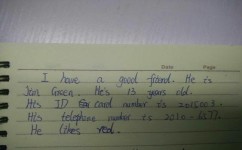 Date Page
I have a good friend. He is
Jean Green. He's 13 years old.
His ID card number is 2015003.
His telephone number is 2010-6377.
He likes red.